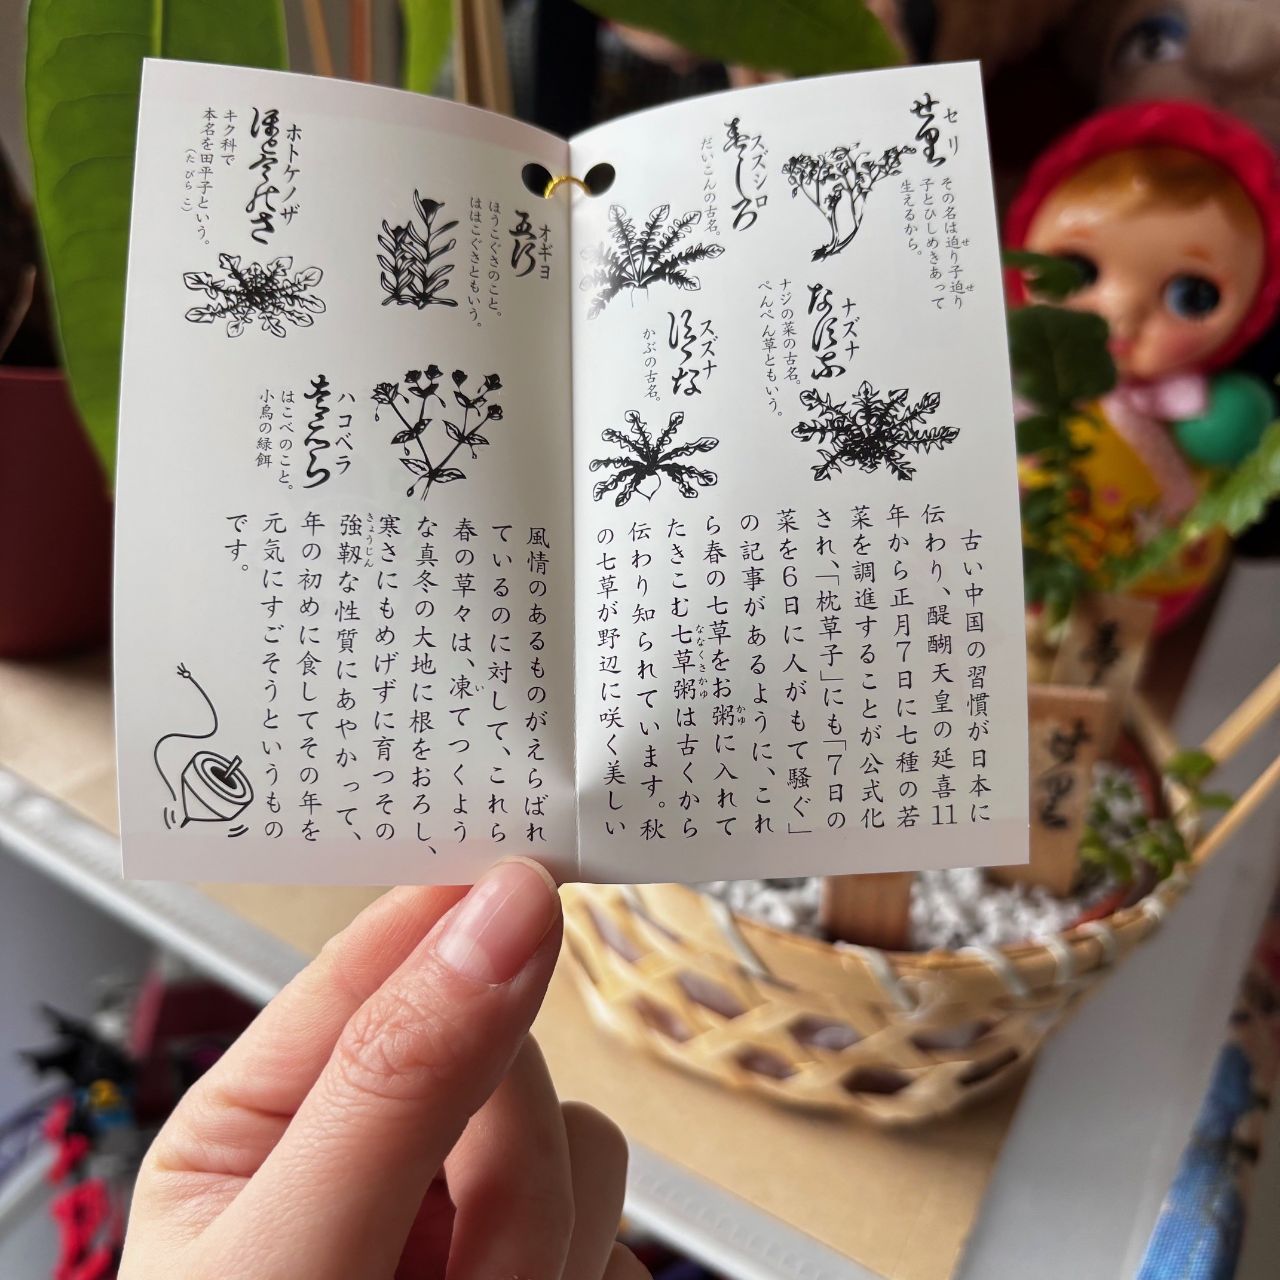 セリ
せ里
その名は迫り子迫り
子とひしめきあって
生えるから。
ナズナ
ナジの菜の古名。
ぺんぺん草ともいう。
スズシロ
だいこんの古名。
スズナ
かぶの古名。
古い中国の習慣が日本に
伝わり、醍醐天皇の延喜11
年から正月7日に七種の若
菜を調進することが公式化
され、「枕草子」にも「7日の
菜を6日に人がもて騒ぐ」
の記事があるように、これ
ら春の七草をお粥に入れて
たきこむ七草粥は古くから
伝わり知られています。秋
の七草が野辺に咲く美しい
オギョ
五行
ほうこぐさのこと。
ははこぐさともいう。
ホトケノザ
キク科で
本名を田平子という。
ハコベラ
はこべのこと。
小鳥の緑餌
風情のあるものがえらばれ
ているのに対して、これら
春の草々は、凍てつくよう
な真冬の大地に根をおろし、
寒さにもめげずに育つその
強靱な性質にあやかって、
年の初めに食してその年を
元気にすごそうというもの
です。